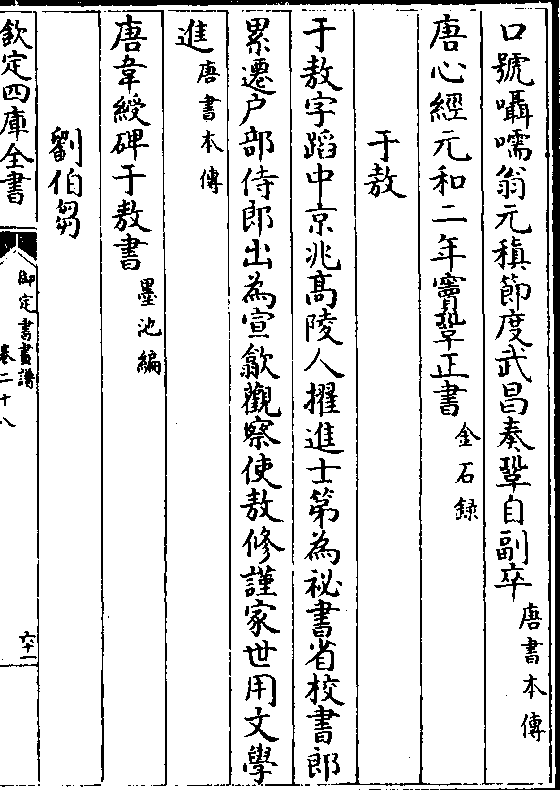 口號囁嚅翁元稹節度武昌奏鞏自副卒唐書本傳
唐心經元和二年竇鞏正書金石録
于敖
于敖字蹈中京兆高陵人擢進士第為祕書省校書郎
累遷户部侍郎出為宣歙觀察使敖修謹家世用文學
進唐書本傳
唐韋綬碑于敖書墨池編
劉伯芻
欽定四庫全書
御定書畫譜
卷二十八
六十一